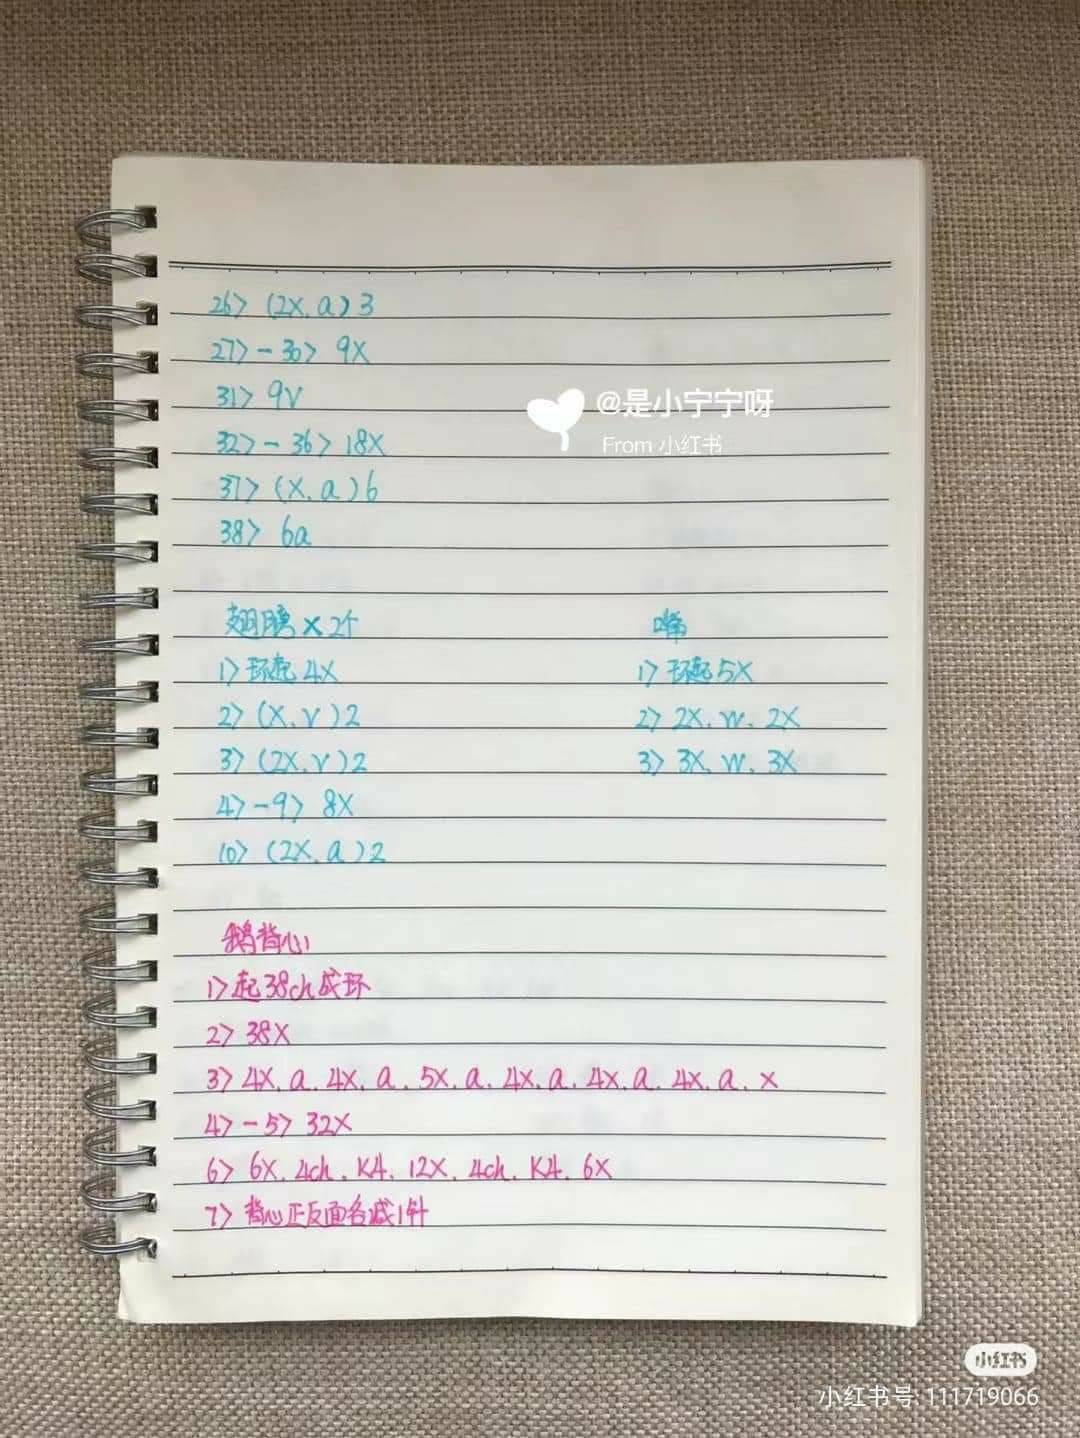 26> (2X. a) 3
27> - 30> 9X
31> 9V
@是小宁宁呀
From 小红书
32> - 36> 18X
37> (X. a) 6
38> 6a
翅膀 x 2个
嘴
1> 环起 4X
1> 环起 5X
2> (X. V) 2
2> 2X. W. 2X
3> (2X. V) 2
3> 3X. W. 3X
4> - 9> 8X
10> (2X. a) 2
鹅背心1
1> 起38ch成环
2> 38X
3> 4X. a. 4X. a. 5X. a. 4X. a. 4X. a. 4X. a. X
4> - 5> 32X
6> 6X. 4ch. K4. 12X. 4ch. K4. 6X
7> 背心正反面各减1针
小红书
小红书号: 111719066